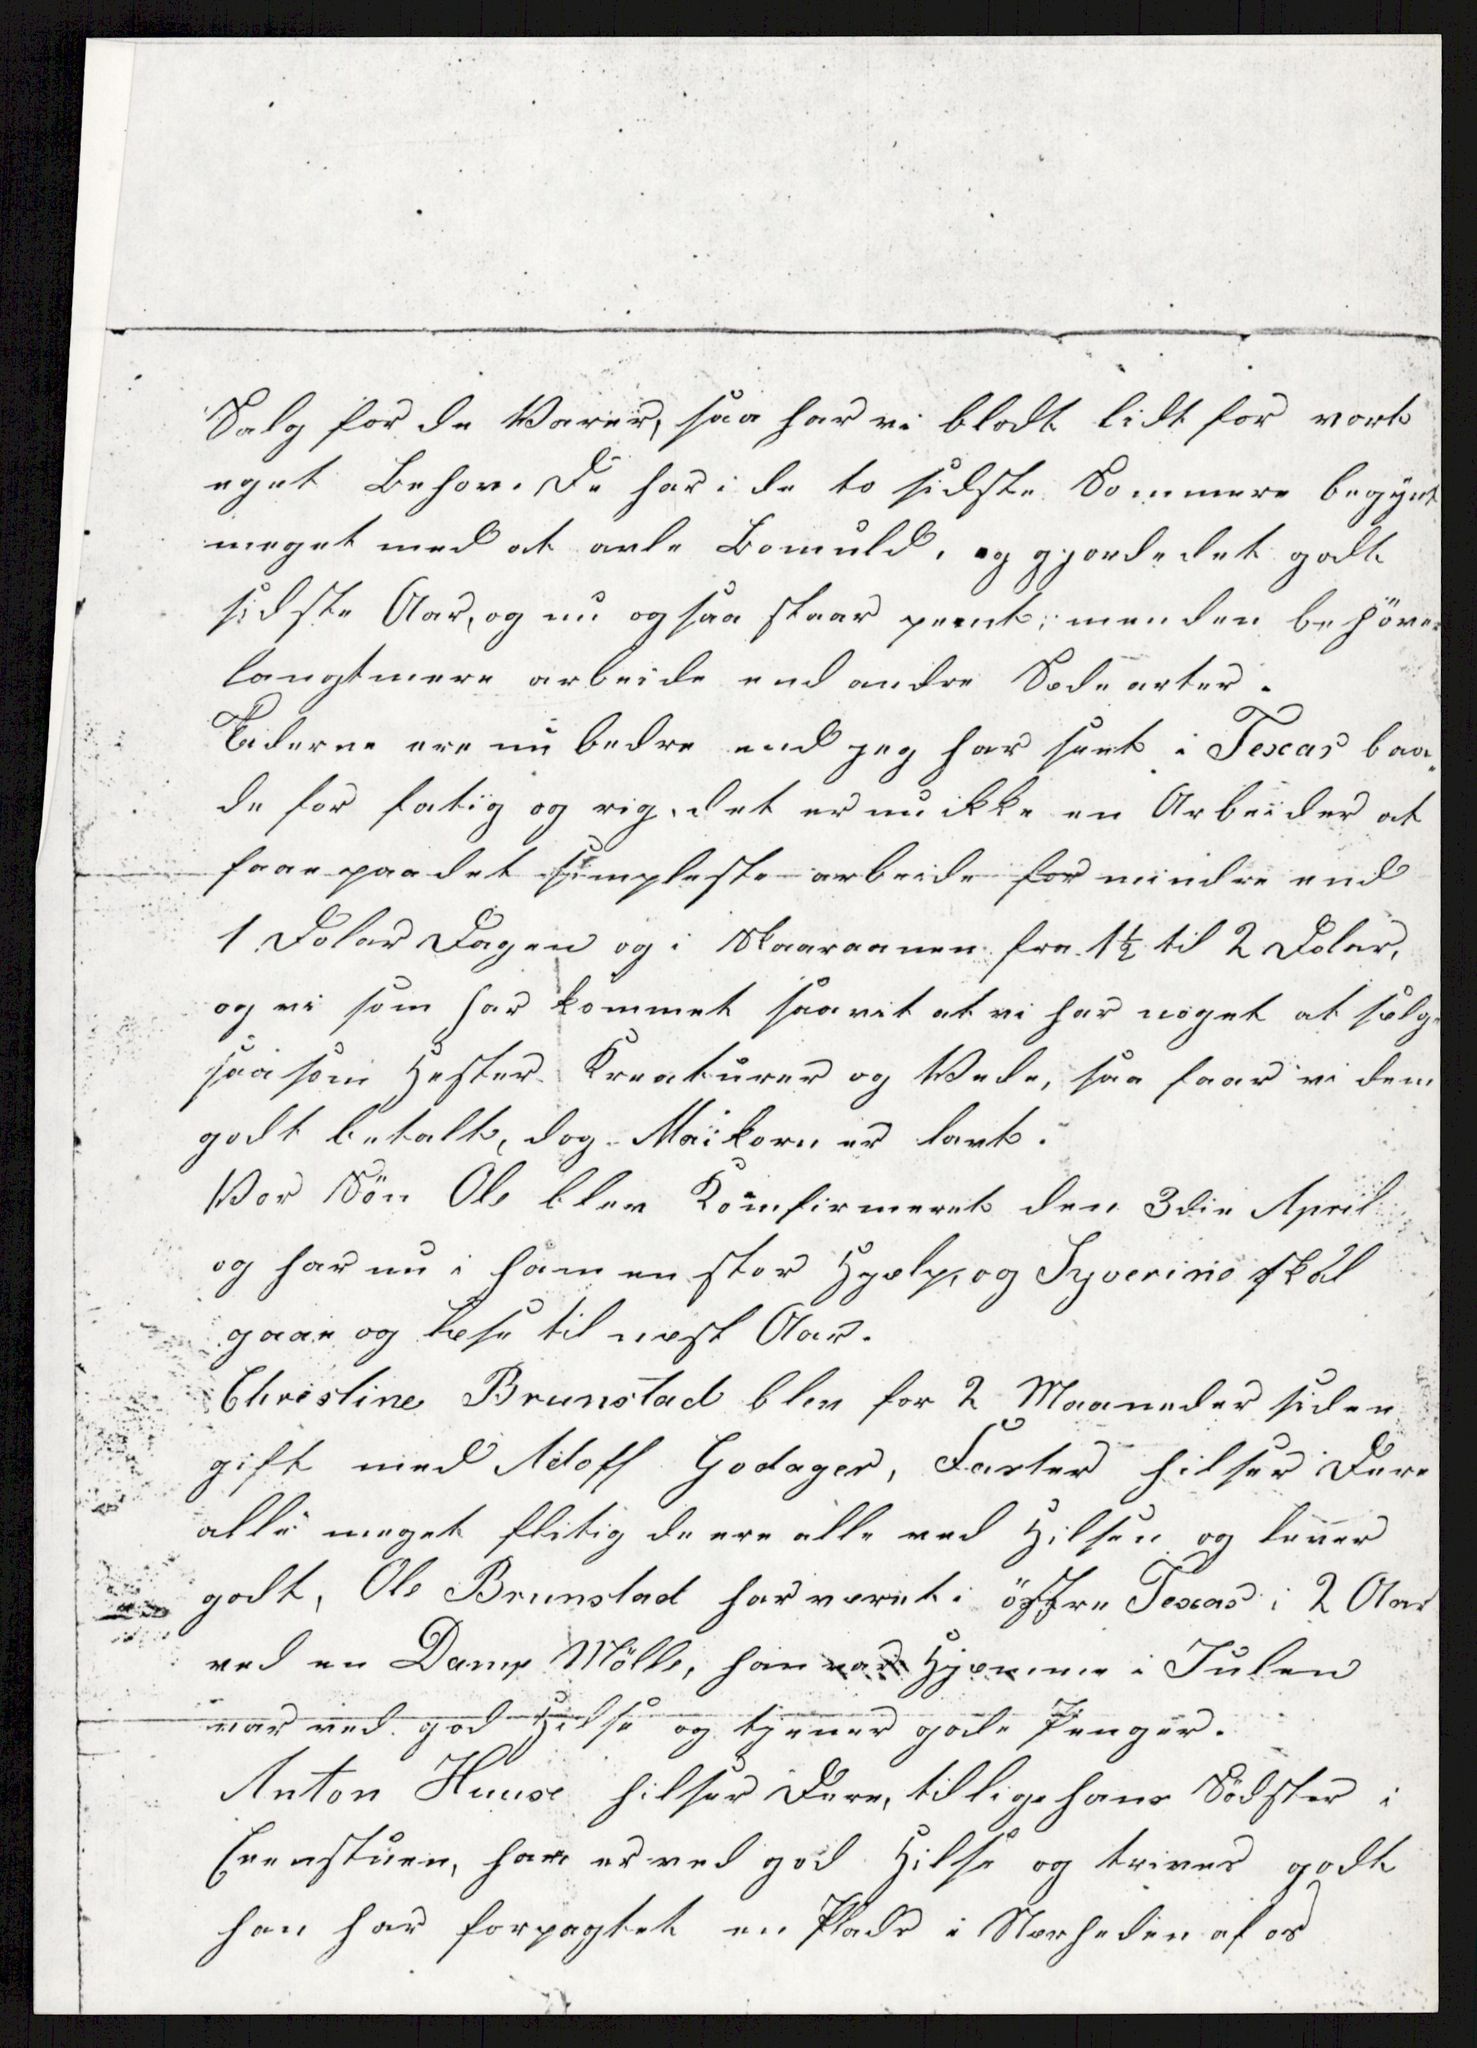 Salg for de Varer, saa har vi blodt lidt for vort
eget Behov. De har i de to sidste Sommere begynt
meget med at avle Bomuld, og gjorde det godt
sidste Aar, og nu ogsaa staar pent; men den behöver
langtmere arbeide end andre Sædearter.
Tiderne ere nu bedre end jeg har seet i Texas baa„
de for fatig og rig, det er nu ikke en Arbeider at
faae paa det simpleste arbeide for mindre end
1 Dolar Dagen og i Skaaraanen fra 1½ til 2 Dolar,
og vi som har kommet saavit at vi har noget at sælge
saasom Hester Kreaturer og Vede, saa faar vi dem
godt betalt, dog Maikorn er lavt.
Vor Sön Ole blev Komfirmeret den 3die April
og har nu i ham en stor Hjælp, og Syverine skal
gaae og læse til næst Aar.
Christine Brunstad blev for 2 Maaneder siden
gift med Adoff Godager, Faster hilser Dere
alle meget flitig de ere alle ved Hilsen og lever
godt, Ole Brunstad har været i östre Texas i 2 Aar
ved en Damp Mölle, han var Hjemme i Julen
var ved god Hilse og tjener gode Penger.
Anton Huuse hilser Dere, tillige hans Södster i
Evenstuen, han er ved god Hilse og trives godt
han har forpagtet en Plads i Nærheden af os